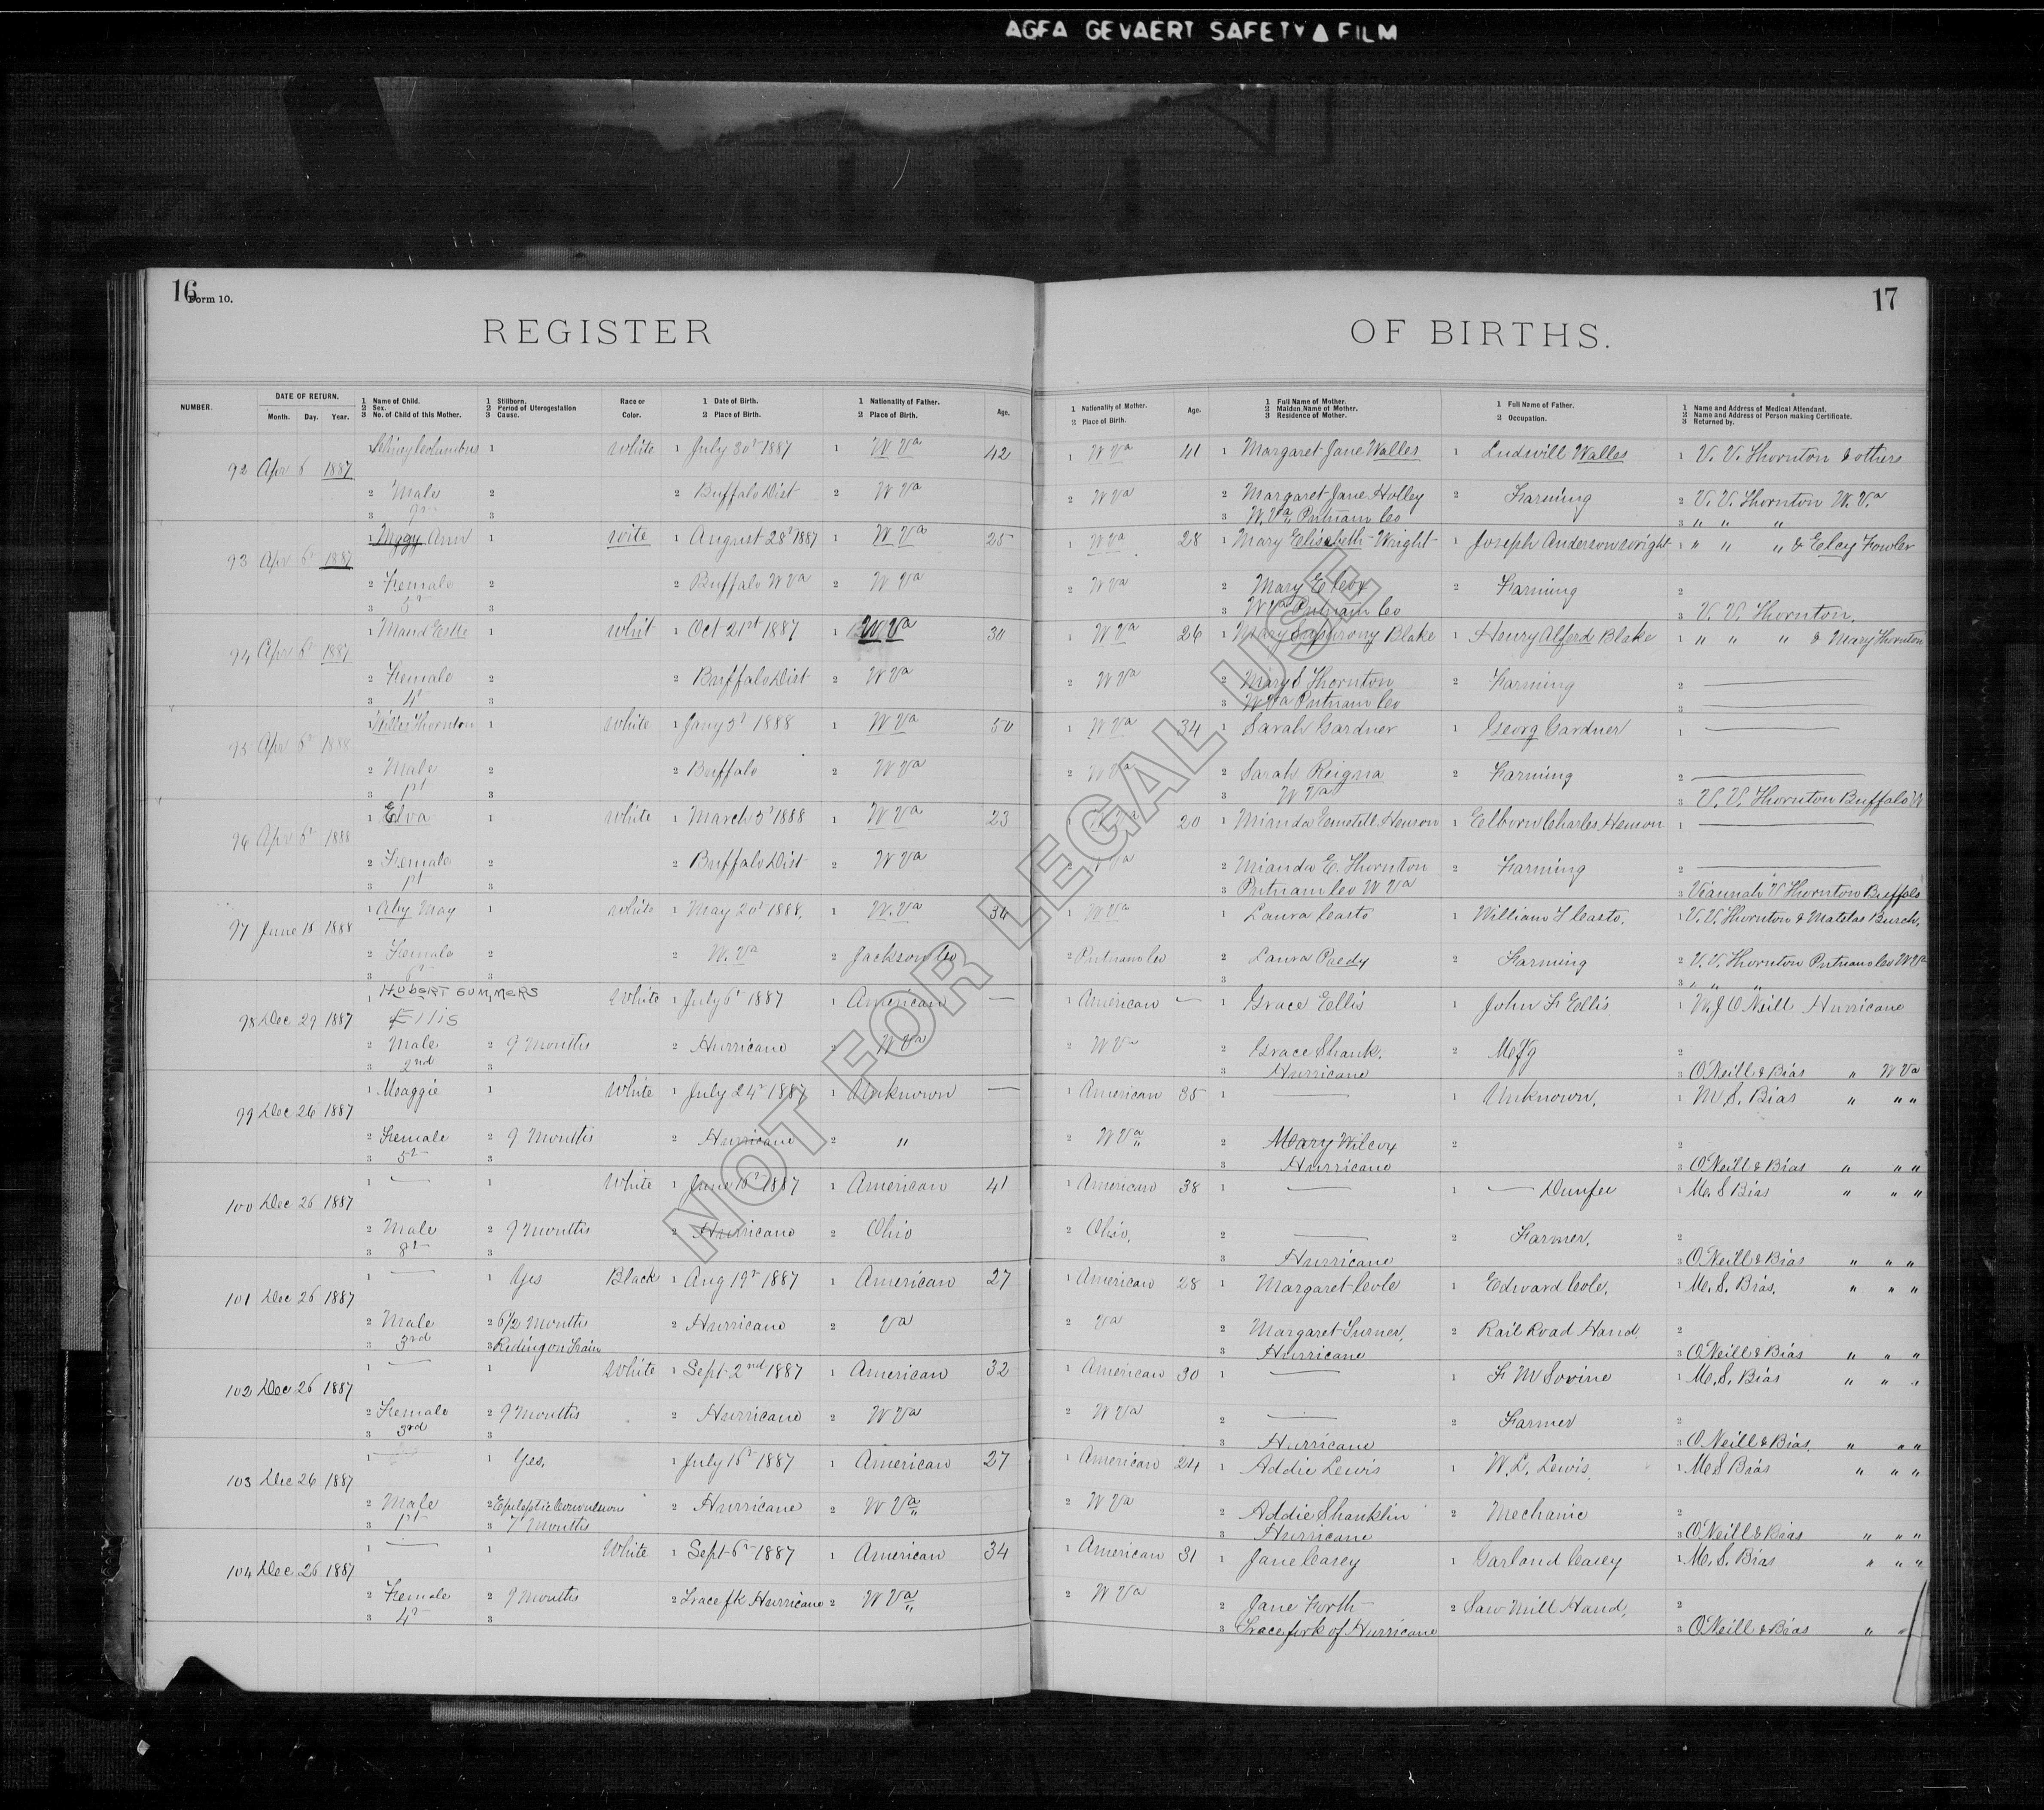 AGFA GEVAERT SAFETY FILM
16 Form 10.
17
REGISTER OF BIRTHS.
NUMBER.
DATE OF RETURN.
Month. Day. Year.
1 Name of Child.
2 Sex.
3 No. of Child of this Mother.
1 Stillborn.
2 Period of Uterogestation
3 Cause.
Race or
Color.
1 Date of Birth.
2 Place of Birth.
1 Nationality of Father.
2 Place of Birth.
Age.
1 Nationality of Mother.
2 Place of Birth.
Age.
1 Full Name of Mother.
2 Maiden Name of Mother.
3 Residence of Mother.
1 Full Name of Father.
2 Occupation.
1 Name and Address of Medical Attendant.
2 Name and Address of Person making Certificate.
3 Returned by.
92 Apr 6 1887 1 Columbus 1 White 1 July 30th 1887 1 W Va 42 1 W Va 41 1 Margaret Jane Walles 1 Ludwill Walles 1 V. V. Thornton & others
2 Male 2 2 Buffalo Dist 2 W Va 2 W Va 2 Margaret Jane Holley 2 Farming 2 V. V. Thornton W. Va
3 3 3 W. Va Putnam Co 3 " " "
93 Apr 6th 1887 1 Magy Ann 1 wite 1 August 28th 1887 1 W Va 25 1 W Va 28 1 Mary Elisabeth Wright 1 Joseph Anderson Wright 1 " " " & Elcy Fowler
2 Female 2 2 Buffalo W Va 2 W Va 2 W Va 2 Mary E Cox 2 Farming 2
3 5th 3 3 W Va Putnam Co 3 V. V. Thornton.
94 Apr 6th 1887 1 Maud Estle 1 whit 1 Oct 21st 1887 1 W Va 30 1 W Va 26 1 Mary Sophrony Blake 1 Henry Alford Blake 1 " " " & Mary Thornton
2 Female 2 2 Buffalo Dist 2 W Va 2 W Va 2 Mary S Thornton 2 Farming 2
3 4 3 3 W Va Putnam Co 3
95 Apr 6th 1888 1 Willes Thornton 1 White 1 Jany 3d 1888 1 W Va 50 1 W Va 34 1 Sarah Gardner 1 Georg Gardner 1
2 Male 2 2 Buffalo 2 W Va 2 W Va 2 Sarah Reigna 2 Farming 2
3 1st 3 3 W Va 3 V. V. Thornton Buffalo W
96 Apr 6th 1888 1 Elva 1 White 1 March 3d 1888 1 W Va 23 1 20 1 Mianda Henson 1 Elborn Charles Henson 1
2 Female 2 2 Buffalo Dist 2 W Va Va 2 Mianda E. Thornton 2 Farming 2
3 1st 3 3 Putnam Co W Va 3 Viannah V Thornton Buffalo
97 June 18 1888 1 Aby May 1 White 1 May 20th 1888. 1 W. Va 36 1 W. Va 1 Laura Casto 1 William F Casto. 1 V. V. Thornton & Matelas Burch.
2 Female 2 2 W. Va 2 Jackson Co 2 Putnam Co 2 Laura Reedy 2 Farming 2 V. V. Thornton Putnam Co W Va
3 6th 3 3 3 " " "
98 Dec 29 1887 1 HUBERT SUMMERS Ellis 1 White 1 July 6th 1887 1 American — 1 American — 1 Grace Ellis 1 John F Ellis. 1 W. J O Neill Hurricane
2 Male 2 9 Months 2 Hurricane 2 W Va 2 W Va 2 Grace Shank. 2 Mefg 2
3 2nd 3 3 Hurricane 3 O'Neill & Bias " W Va
99 Dec 26 1887 1 Maggie 1 White 1 July 24th 1887 1 Unknown — 1 American 35 1 — 1 Unknown. 1 M. S. Bias " " "
2 Female 2 9 Months 2 Hurricane 2 " 2 W Va 2 Mary Wilcox 2 2
3 5th 3 3 Hurricane 3 O'Neill & Bias " " "
100 Dec 26 1887 1 — 1 White 1 June 16th 1887 1 American 41 1 American 38 1 — 1 — Dunfee 1 M. S Bias " " "
2 Male 2 9 Months 2 Hurricane 2 Ohio 2 Ohio. 2 — 2 Farmer. 2
3 8th 3 3 Hurricane 3 O'Neill & Bias " " "
101 Dec 26 1887 1 — 1 Yes Black 1 Aug 19th 1887 1 American 27 1 American 28 1 Margaret Cole 1 Edward Cole. 1 M. S. Bias. " " "
2 Male 2 6/2 Months 2 Hurricane 2 Va 2 Va 2 Margaret Turner. 2 Rail Road Hand. 2
3 3rd 3 Riding on Train 3 Hurricane 3 O'Neill & Bias " " "
102 Dec 26 1887 1 — 1 White 1 Sept 2nd 1887 1 American 32 1 American 30 1 — 1 F M Sovine 1 M. S. Bias " " "
2 Female 2 9 Months 2 Hurricane 2 W Va 2 W Va 2 — 2 Farmer 2
3 3rd 3 3 Hurricane 3 O'Neill & Bias. " " "
103 Dec 26 1887 1 — 1 Yes. 1 July 16th 1887 1 American 27 1 American 24 1 Addie Lewis 1 W. L. Lewis. 1 M S Bias " " "
2 Male 2 Epileptic Convulsions 2 Hurricane 2 W Va 2 W Va 2 Addie Shanklin 2 Mechanic 2
3 1st 3 7 Months 3 Hurricane 3 O'Neill & Bias " " "
104 Dec 26 1887 1 — 1 White 1 Sept 6th 1887 1 American 34 1 American 31 1 Jane Casey 1 Garland Casey 1 M. S. Bias " " "
2 Female 2 9 Months 2 Trace fk Hurricane 2 W Va 2 W Va 2 Jane Forth 2 Saw Mill Hand. 2
3 4th 3 3 Trace fork of Hurricane 3 O'Neill & Bias " "
NOT FOR LEGAL USE